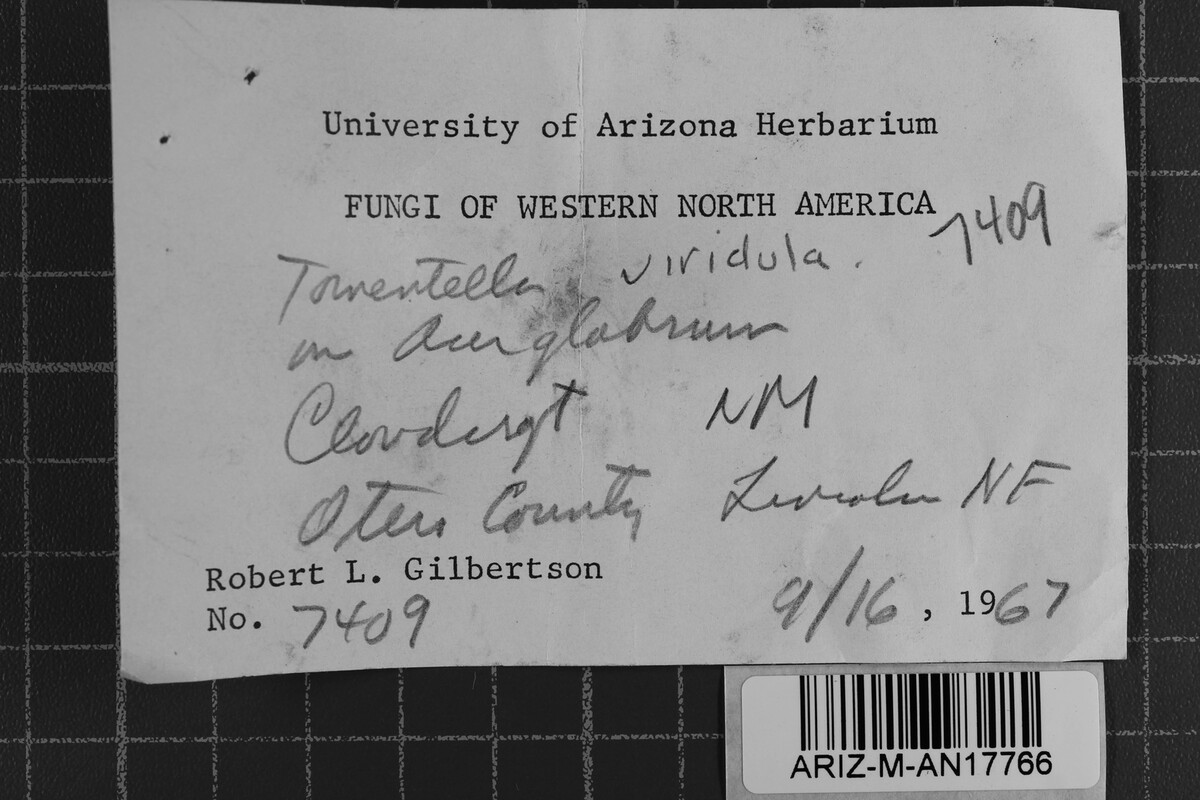 University of Arizona Herbarium
FUNGI OF WESTERN NORTH AMERICA
7409
Tomentella viridula.
on Acer glabrum
Cloudcroft NM
Otero County Lincoln NF
Robert L. Gilbertson
No. 7409 9/16, 1967
ARIZ-M-AN17766